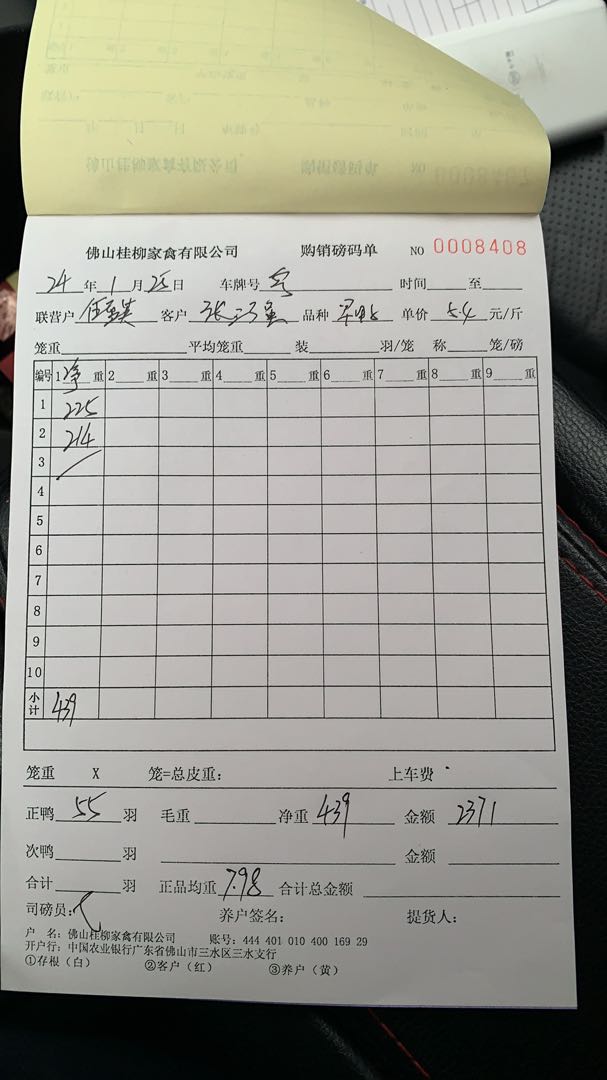 佛山桂柳家禽有限公司 购销磅码单 NO 0008408
24 年 1 月 25 日 车牌号 时间 至
联营户 客户 品种 单价 5.4 元/斤
笼重 平均笼重 装 羽/笼 称 笼/磅
编号 1 净 重 2 重 3 重 4 重 5 重 6 重 7 重 8 重 9 重
1 225
2 214
3
4
5
6
7
8
9
10
小计 439
笼重 X 笼=总皮重: 上车费
正鸭 55 羽 毛重 净重 439 金额 2371
次鸭 羽 金额
合计 羽 正品均重 7.98 合计总金额
司磅员: 养户签名: 提货人:
户 名: 佛山桂柳家禽有限公司 账号: 444 401 010 400 169 29
开户行: 中国农业银行广东省佛山市三水区三水支行
①存根(白) ②客户(红) ③养户(黄)